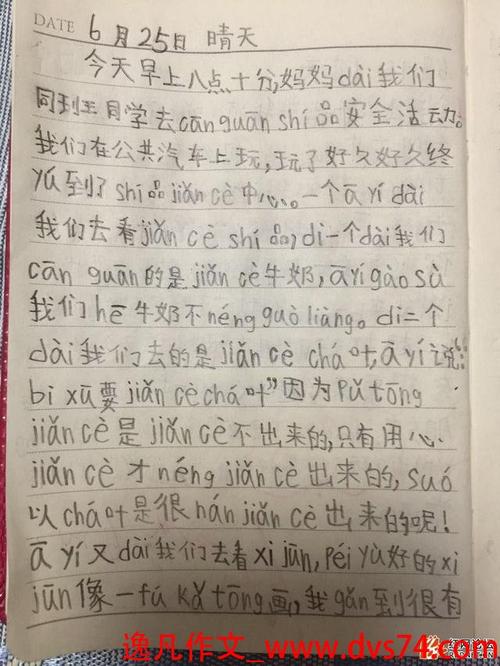 DATE 6月25日 晴天
今天早上八点十分,妈妈dài我们
同到王同学去cānguān shí品安全活动。
我们在公共汽车上玩,玩了好久好久终
yú到了shí品jiǎn cè中心。一个ā yí dài
我们去看jiǎn cè shí品,di一个dài我们
cān guān的是jiǎn cè牛奶,āyí gào sù
我们hē牛奶不néng guò liàng。di二个
dài我们去的是jiǎn cè chá叶,ā yí说:“
bì xū要jiǎn cè chá叶”因为pǔ tōng
jiǎn cè是jiǎn cè不出来的,只有用心
jiǎn cè才néng jiǎn cè出来的,suó
以chá叶是很nán jiǎn cè出来的呢!
ā yí又dài我们去看xì jūn,péi yù好的xì
jūn像一fú kǎ tōng画,我gǎn到很有
逸凡作文_www.dvs74.com